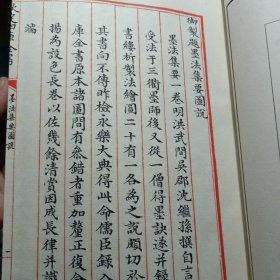 御製題墨法集要圖說
墨法集要一卷明洪武間吳郡沈繼孫撰自言
受法于三衢墨師後又從一僧得墨訣逐幷録成
書縷析製法繪圖二十有一各為之說頗切於用
其書向不傳昨檢永樂大典得此命儒臣録入四
庫全書原本諸圖間有叅錯者重加釐正復命圖
揚為設色長卷以佐幾餘清賞因成長律并識簡
端
墨法集要圖說